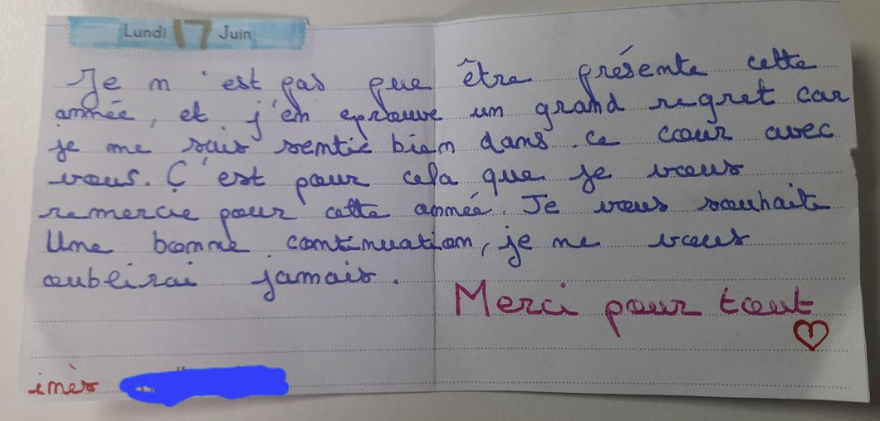 Lundi 17 Juin
Je n'est pas que être présente cette
année, et j'en eprouve un grand regret car
je me suis sentie bien dans ce cour avec
vous. Ç'est pour cela que je vous
remercie pour cette année. Je vous souhaite
Une bonne continuation, je ne vous
oublirai jamais.
Merci pour tout
inès